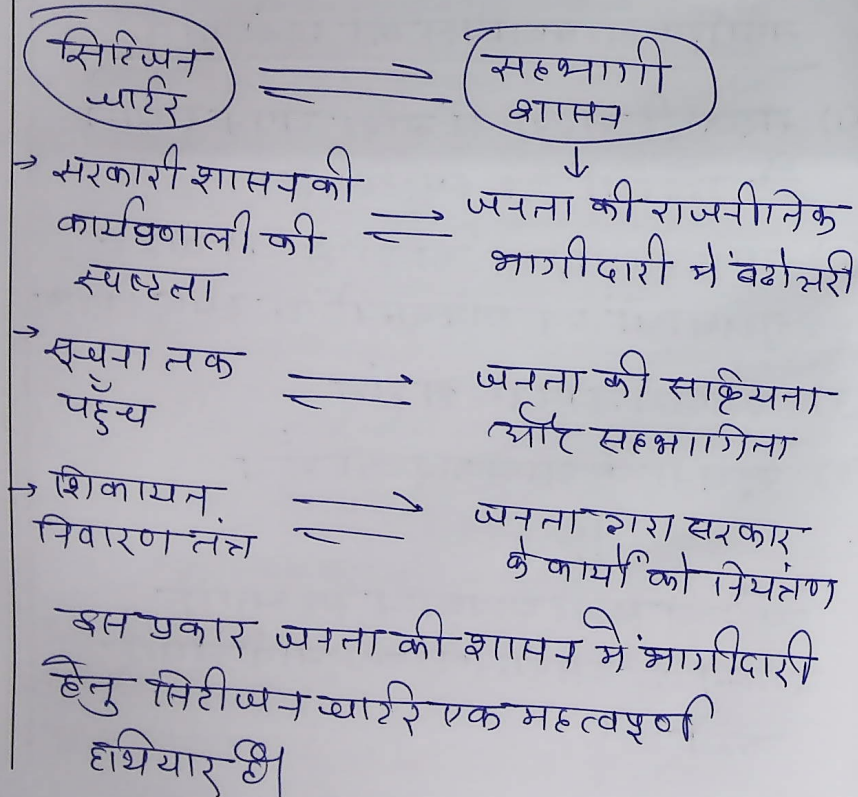 सिटिजन
चार्टर
सहभागी
शासन
→ सरकारी शासन की
कार्यप्रणाली की
स्पष्टता
जनता की राजनीतिक
भागीदारी में बढोत्तरी
→ सूचना तक
पहुँच
जनता की सक्रियता
और सहभागिता
→ शिकायत
निवारण तंत्र
जनता द्वारा सरकार
के कार्यों को नियंत्रण
इस प्रकार जनता की शासन में भागीदारी
हेतु सिटीजन चार्टर एक महत्वपूर्ण
हथियार है।